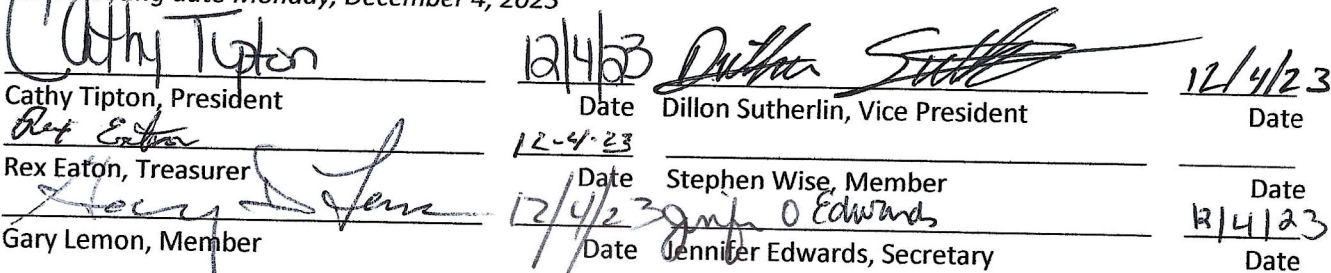 ng date Monday, December 4, 2023
Cathy Tipton 12/4/23 12/4/23
Cathy Tipton, President Date Dillon Sutherlin, Vice President Date
Rex Eaton 12-4-23
Rex Eaton, Treasurer Date Stephen Wise, Member Date
Gary D Lemon 12/4/23 Jennifer O Edwards 12/4/23
Gary Lemon, Member Date Jennifer Edwards, Secretary Date